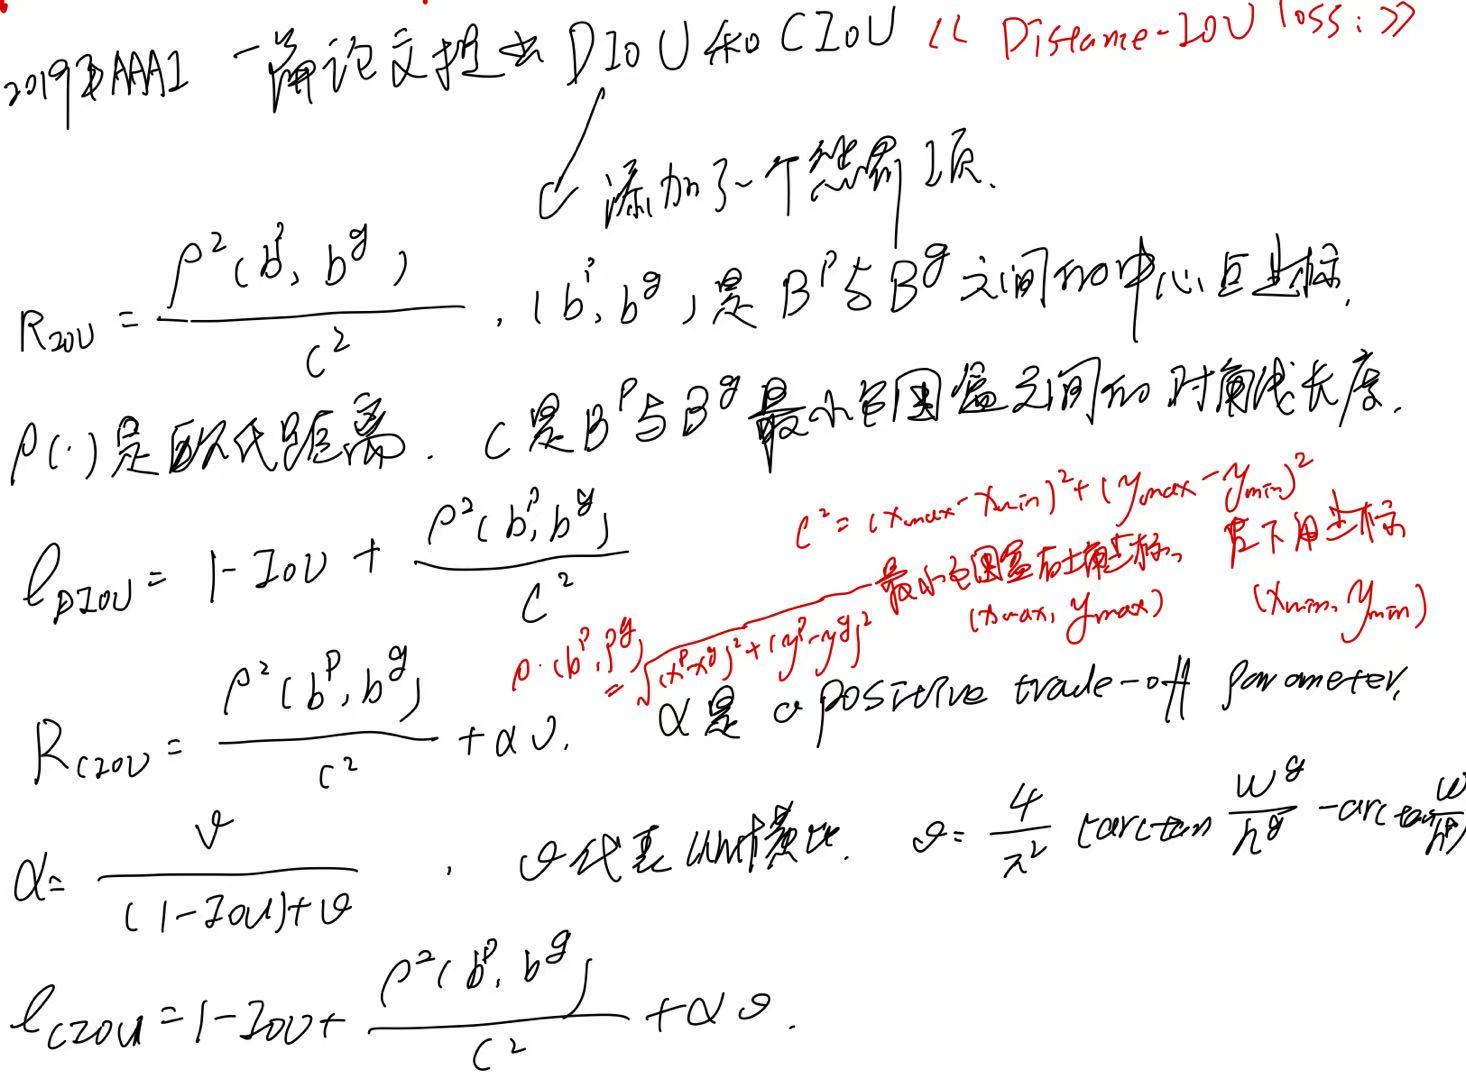 2019年AAAI 一篇论文提出DIoU和CIoU 《Distance-IOU loss:》
添加了一个惩罚项.
R_IOU = ρ²(b^p, b^g) / C² , (b^p, b^g)是B^p与B^g之间的中心点坐标.
ρ(·)是欧氏距离. C是B^p与B^g最小包围盒之间的对角线长度.
C² = (x_max - x_min)² + (y_max - y_min)²
ℓ_DIOU = 1 - IOU + ρ²(b^p, b^g) / C²
最小包围盒右上角坐标、 左下角坐标
(x_max, y_max) (x_min, y_min)
ρ·(b^p, b^g) = √(x^p-x^g)²+(y^p-y^g)²
R_CIOU = ρ²(b^p, b^g) / C² + αv. α是 a positive trade-off parameter,
α = v / ((1-IOU)+v) , v代表 v = 4/π² (arctan w^g/h^g - arctan w/h^p)
ℓ_CIOU = 1 - IOU + ρ²(b^p, b^g) / C² + αv.